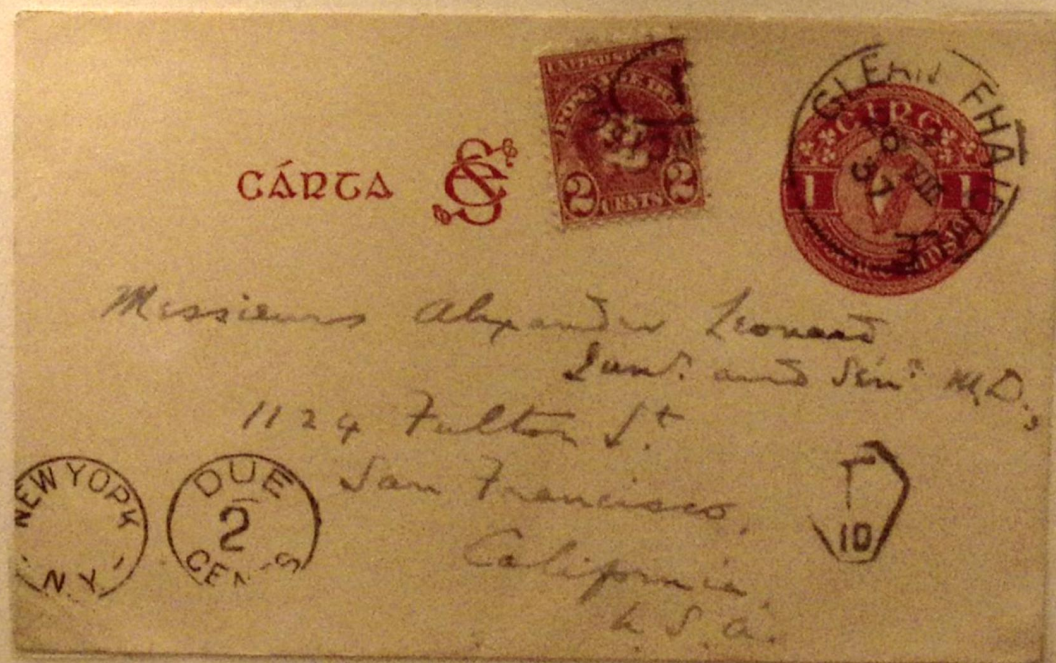 UNITED STATES
2 CENTS 2
GLEANN FHA
1 1
37
CÁRTA SE
Messieurs Alexander Leonard
Junr. and Senr. M.D.,
1124 Fulton St.
San Francisco,
California,
U.S.A.
NEW YORK
N.Y.
DUE
2
CENTS
T
10